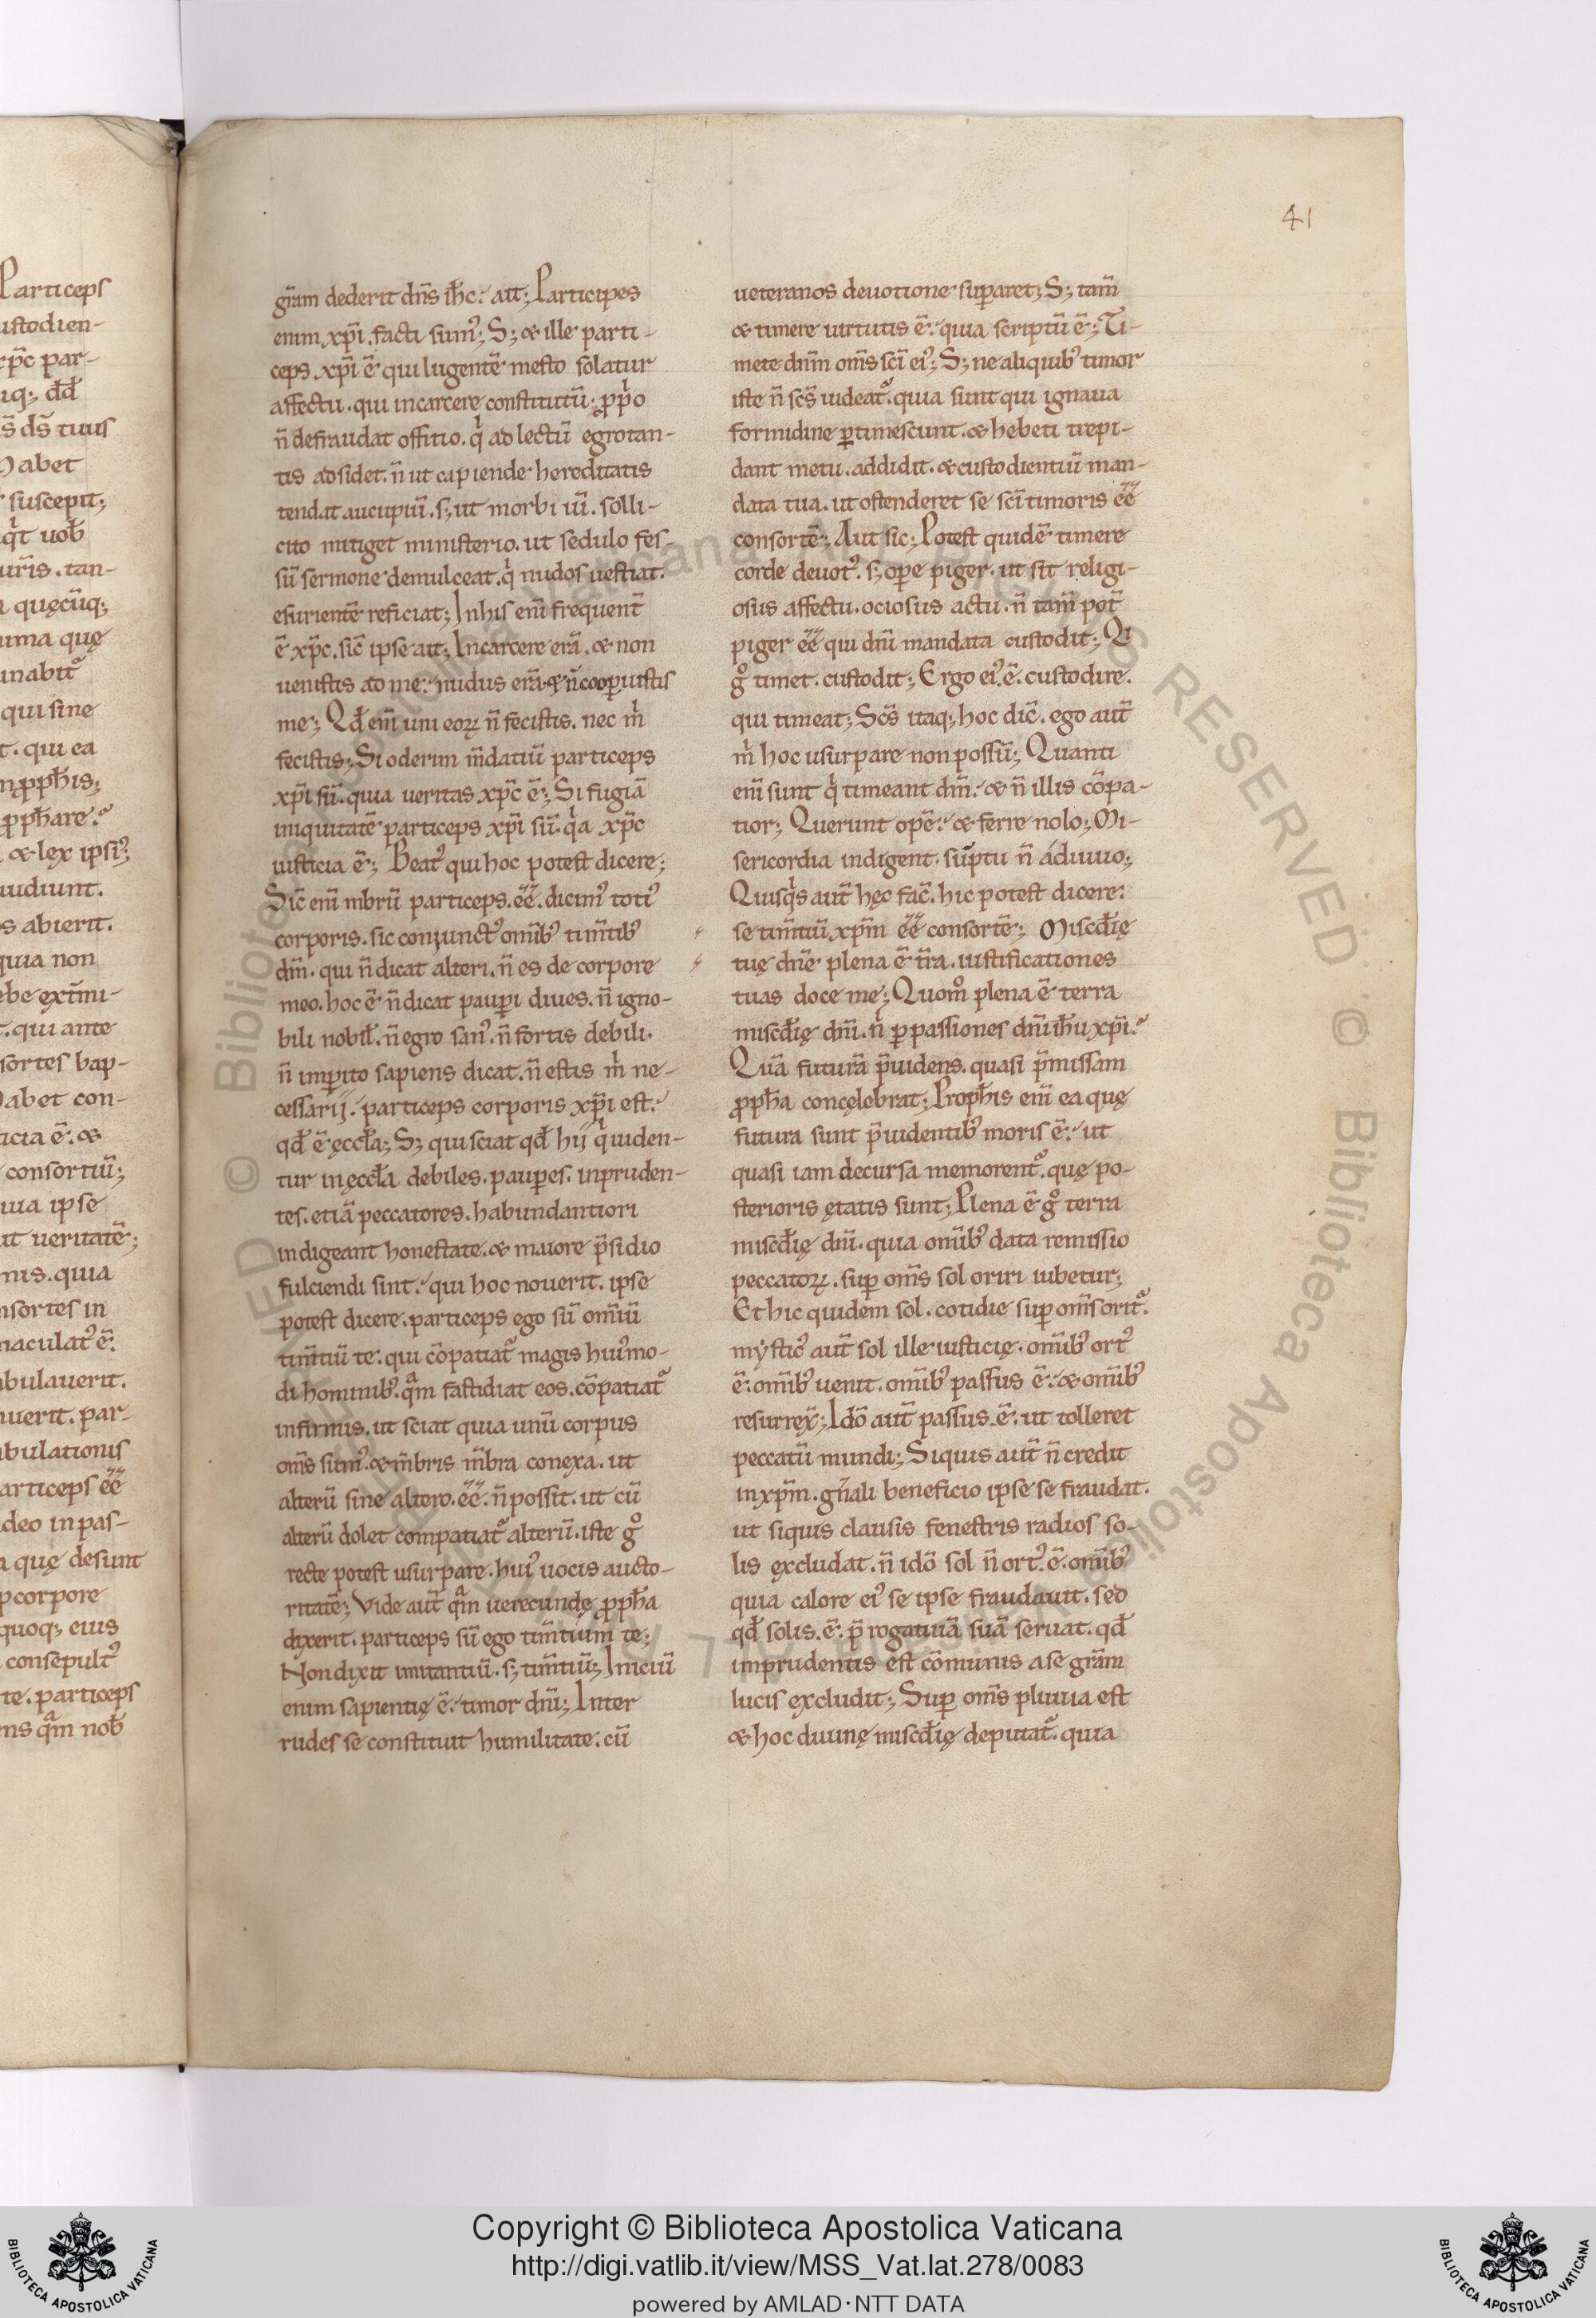 Particeps
ustodien-
xp̄c par-
uq; dđ
s̄ ds̄ tuus
habet
suscepit;
q̇t uob̄
ur̄is. tan-
quęcūq;
uma quę
inabit᷑
qui sine
t. qui ea
n ꝓph̄is;
ꝓph̄are.
& lex ipsiꝰ
audiunt.
os abierit.
quia non
ebe ext̄mi-
t. qui ante
sortes bap-
habet con-
ticia ē. &
consortiū;
uia ipse
it ueritatē;
nis. quia
nsortes in
maculatꝰ ē.
abulauerit.
auerit. par-
abulationis
articeps ēē
ideo in pas-
a quę desunt
p corpore
quoq; eius
consepultꝰ
te. particeps
ens qm̄ nob̄
41
gr̄am dederit dn̄s ih̄c. ait; Participes
enim xp̄i facti sumꝰ; S; & ille parti-
ceps xp̄i ē qui lugentē mesto solatur
affectu. qui incarcere constitutū. ꝓp̄o
n̄ defraudat offitio. q̇ ad lectū egrotan-
tis adsidet. n̄ ut capiende hereditatis
tendat aucupiū. s; ut morbi uī. solli-
cito mitiget ministerio. ut sedulo fes-
sū sermone demulceat. q̇ nudos uestiat.
esurientē reficiat; In his enī frequent̄
ē xp̄c. sic̄ ipse ait; Incarcere erā. & non
uenistis ad me. nudus erā & n̄ cooꝑuistis
me; Qđ enī uni eoꝝ n̄ fecistis. nec ṁ
fecistis; Si oderim m̄datiū particeps
xp̄i sū. quia ueritas xp̄c ē; Si fugiā
iniquitatē particeps xp̄i sū. q̇a xp̄c
iusticia ē; Beatꝰ qui hoc potest dicere;
Sic̄ enī mbrū particeps. ēē. dicimꝰ totiꝰ
corporis. sic conjunctꝰ omībꝰ tim̄tibꝰ
dm̄. qui n̄ dicat alteri. n̄ es de corpore
meo. hoc ē n̄ dicat pauꝑi diues. n̄ igno-
bili nobil̄. n̄ egro sanꝰ. n̄ fortis debili.
n̄ imꝑito sapiens dicat. n̄ estis ṁ ne-
cessarij. particeps corporis xp̄i est.
qđ ē ęccl̄a; S; qui sciat qđ hij q̇ uiden-
tur in ęccl̄a debiles. pauꝑes. inpruden-
tes. etiā peccatores. habundantiori
indigeant honestate. & maiore p̄sidio
fulciendi sint. qui hoc nouerit. ipse
potest dicere. particeps ego sū omīū
tim̄tiū te. qui cōpatiat᷑ magis huꝰmo-
di hominibꝰ. qm̄ fastidiat eos. cōpatiat᷑
infirmis. ut sciat quia unū corpus
om̄s sumꝰ. & m̄bris m̄bra conexa. ut
alterū sine altero. ēē. n̄ possit. ut cū
alterū dolet compatiat᷑ alterū. iste gͦ
recte potest usurpare. huiꝰ uocis aucto-
ritatē; Vide aut̄ qm̄ uerecundę ꝓph̄a
dixerit. particeps sū ego tim̄tium te;
Non dixit imitantiū. s; tim̄tiū; Iniciū
enim sapientię ē. timor dn̄i; Inter
rudes se constituit humilitate. cū
ueteranos deuotione suꝑaret; S; tam̄
& timere uirtutis ē. quia scriptū ē; Ti-
mete dn̄m om̄s sc̄i eiꝰ; S; ne aliquibꝰ timor
iste n̄ sc̄s uideat᷑. quia sunt qui ignaua
formidine ꝑtimescunt. & hebeti trepi-
dant metu. addidit. & custodientiū man-
data tua. ut ostenderet se sc̄i timoris ēē
consortē; Aut sic; Potest quidē timere
corde deuotꝰ. s; oꝑe piger. ut sit religi-
osus affectu. ociosus actu. n̄ tam̄ pot̄
piger ēē qui dn̄i mandata custodit; Qi
gͦ timet. custodit; Ergo eiꝰ. ē. custodire.
qui timeat; Sc̄s itaq; hoc dic̄. ego aut̄
ṁ hoc usurpare non possū; Quanti
enī sunt q̇ timeant dm̄. & n̄ illis cōpa-
tior; Querunt opē. & ferre nolo; Mi-
sericordia indigent. sūptu n̄ adiuuo;
Quisq̇s aut̄ hęc fac̄. hic potest dicere.
se tim̄tiū xp̄m ēē consortē; Misc̄dię
tuę dn̄e plena ē t̄ra. iustificationes
tuas doce me; Quomͦ plena ē terra
misc̄dię dn̄i. n̄ ꝑ passiones dn̄i ih̄u xp̄i.
Quā futurā p̄uidens. quasi p̄missam
ꝓph̄a concęlebrat; Proph̄is enī ea quę
futura sunt p̄uidentibꝰ moris ē. ut
quasi iam decursa memorent᷑. quę po-
sterioris ętatis sunt; Plena ē gͦ terra
misc̄dię dn̄i. quia omībꝰ data remissio
peccatoꝝ. suꝑ om̄s sol oriri iubetur;
Et hic quidem sol. cotidie suꝑ om̄s orit᷑.
mysticꝰ aut̄ sol ille iusticię. omībꝰ ortꝰ
ē. omībꝰ uenit. omībꝰ passus ē. & omībꝰ
resurrex̄; Idō aut̄ passus. ē. ut tolleret
peccatū mundi; Siquis aut̄ n̄ credit
in xp̄m. gn̄ali beneficio ipse se fraudat.
ut siquis clausis fenestris radios so-
lis ęxcludat. n̄ idō sol n̄ ortꝰ. ē. omībꝰ
quia calore eiꝰ se ipse fraudauit. sed
qđ solis. ē. p̄rogatiuā suā seruat. qđ
imprudentis est cōmunis a se gr̄am
lucis ęxcludit; Suꝑ om̄s pluuia est
& hoc diuinę misc̄dię deputat᷑. quia
Copyright © Biblioteca Apostolica Vaticana
http://digi.vatlib.it/view/MSS_Vat.lat.278/0083
powered by AMLAD·NTT DATA
BIBLIOTECA APOSTOLICA VATICANA
BIBLIOTECA APOSTOLICA VATICANA